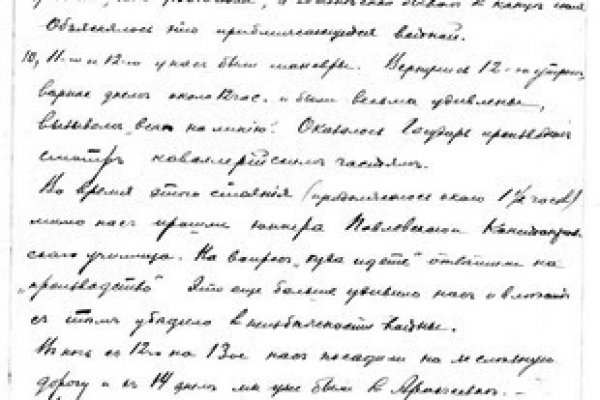 Объяснялось это приближающейся войной.
10, 11-го и 12-го у нас были маневры. Вернулись 12-го утром,
вернее днем около 12 час. и были весьма удивлены,
вызовом "всем на линию". Оказалось Государь производит
смотр кавалерийским частям.
Во время этого стояния (продолжалось около 1½ часов)
мимо нас прошли юнкера Павловского
ского училища. На вопрос "куда идете" ответили на
"производство" Это еще больше удивило нас и
с тем убедило в неизбежности войны.
В ночь с 12-го на 13-ое нас посадили на железную
дорогу и 14 днем мы уже были в